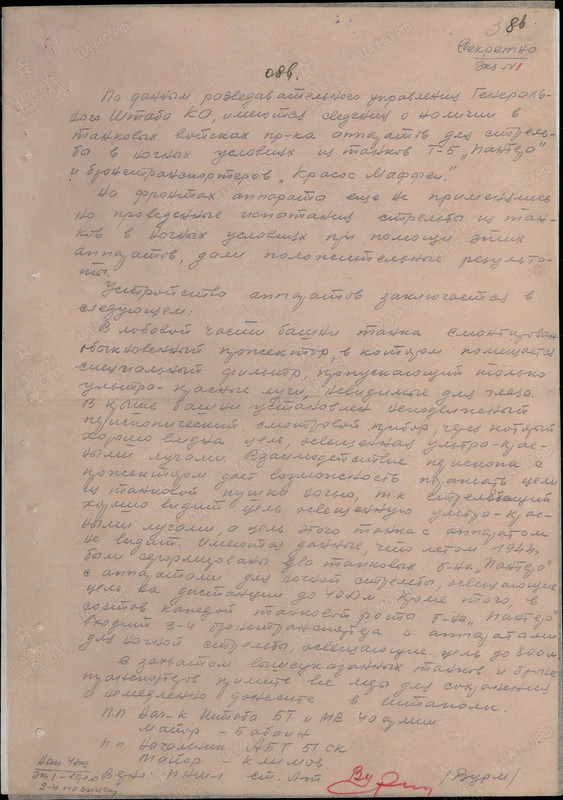 86
Секретно
Экз №1
088.
По данным разведывательного управления Генераль-
ного Штаба КА, имеются сведения о наличии в
танковых войсках пр-ка аппаратов для стрель-
бы в ночных условиях из танков Т-5 „Пантера"
и бронетранспортеров „Красос Маффеи."
На фронтах аппараты еще не применялись
но проведенные испытания стрельбы из тан-
ков в ночных условиях при помощи этих
аппаратов, дали положительные результа-
ты.
Устройство аппаратов заключается в
следующем:
В лобовой части башни танка смонтирован
обыкновенный прожектор, в котором помещается
специальный фильтр, пропускающий только
ультра-красные лучи, невидимые для глаза.
В крыше башни установлен неподвижный
перископический смотровой прибор, через который
хорошо видна цель, освещенная ультра-крас-
ными лучами. Взаимодействие перископа с
прожектором дает возможность поражать цели
из танковой пушки ночью, т.к. стреляющий
хорошо видит цель освещенную ультра-крас-
ными лучами, а цель этого танка с аппаратом
не видит. Имеются данные, что летом 1944г.
были сформированы два танковых б-на „Пантера"
с аппаратами для ночной стрельбы, освещающие
цель на дистанции до 400м. Кроме того, в
состав каждой танковой роты б-на „Пантер"
входит 3-4 бронетранспортера с аппаратами
для ночной стрельбы, освещающие цель до 800м
С захватом вышеуказанных танков и броне-
транспортеров примите все меры для сохранения
и немедленно донесите в штаб
п.п. Нач-к Штаба БТ и МВ 40 армии
Майор - Бабаин
п.п. Начальник АБТ 51 ск
Майор - Климов
Верно: ПНШ-1 ст. л-т /Вурм/
Экз 1 - адрес
2-й по писку